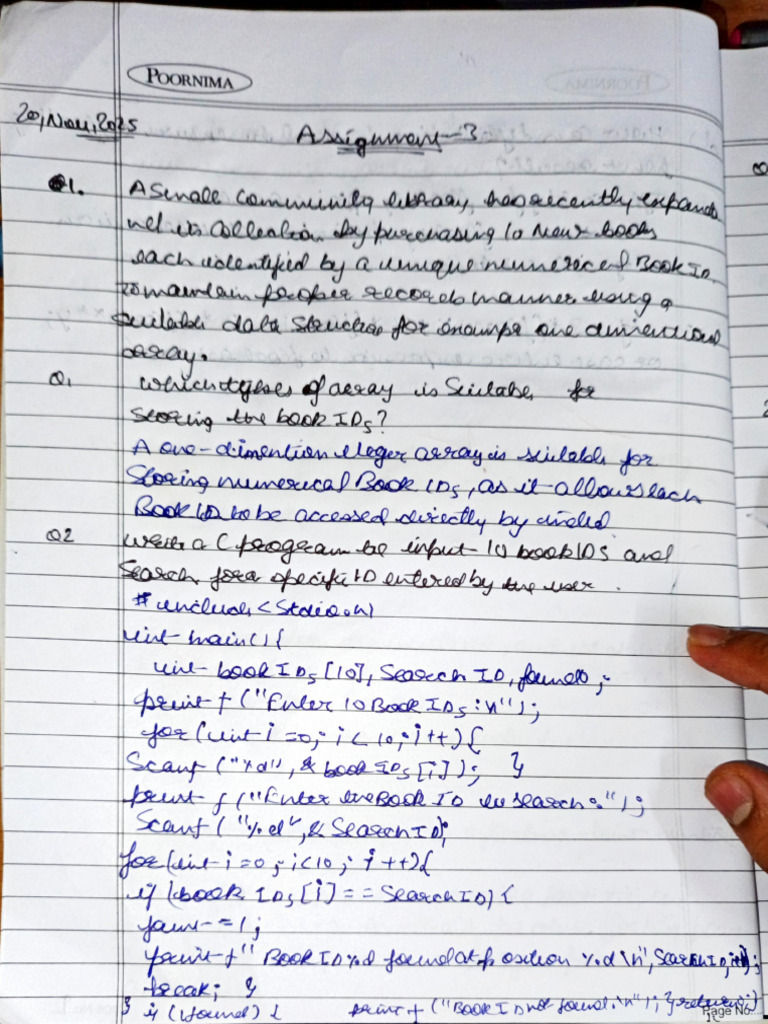 POORNIMA
20, Nov, 2025
Assignment-3
Q1. A small community library has recently expand
ed its collection by purchasing 10 new books
each identified by a unique numerical Book ID.
To maintain proper records manner using a
suitable data structure for example one dimentional
array.
Q1 Which types of array is suitable for
storing the book IDs?
A one-dimention integer array is suitable for
storing numerical Book IDs, as it allows each
Book ID to be accessed directly by
Q2 Write a C program to input 10 book IDS and
Search for a specific ID entered by the user.
# include <stdio.h>
int main() {
int book IDs [10], Search ID, found=0;
printf ("Enter 10 Book IDs :\n");
for (int i =0; i< 10; i++) {
Scanf ("%d", & book IDs [i]); }
printf ("Enter the Book ID to search:");
Scanf ("%d", & Search ID);
for (int i=0; i<10; i++) {
if (book IDs [i] == Search ID) {
foun = 1;
printf " Book ID %d found at position %d \n", Search ID, i+1);
break; }
} if (!found) { printf ("Book ID not found.\n"); } return
Page No.